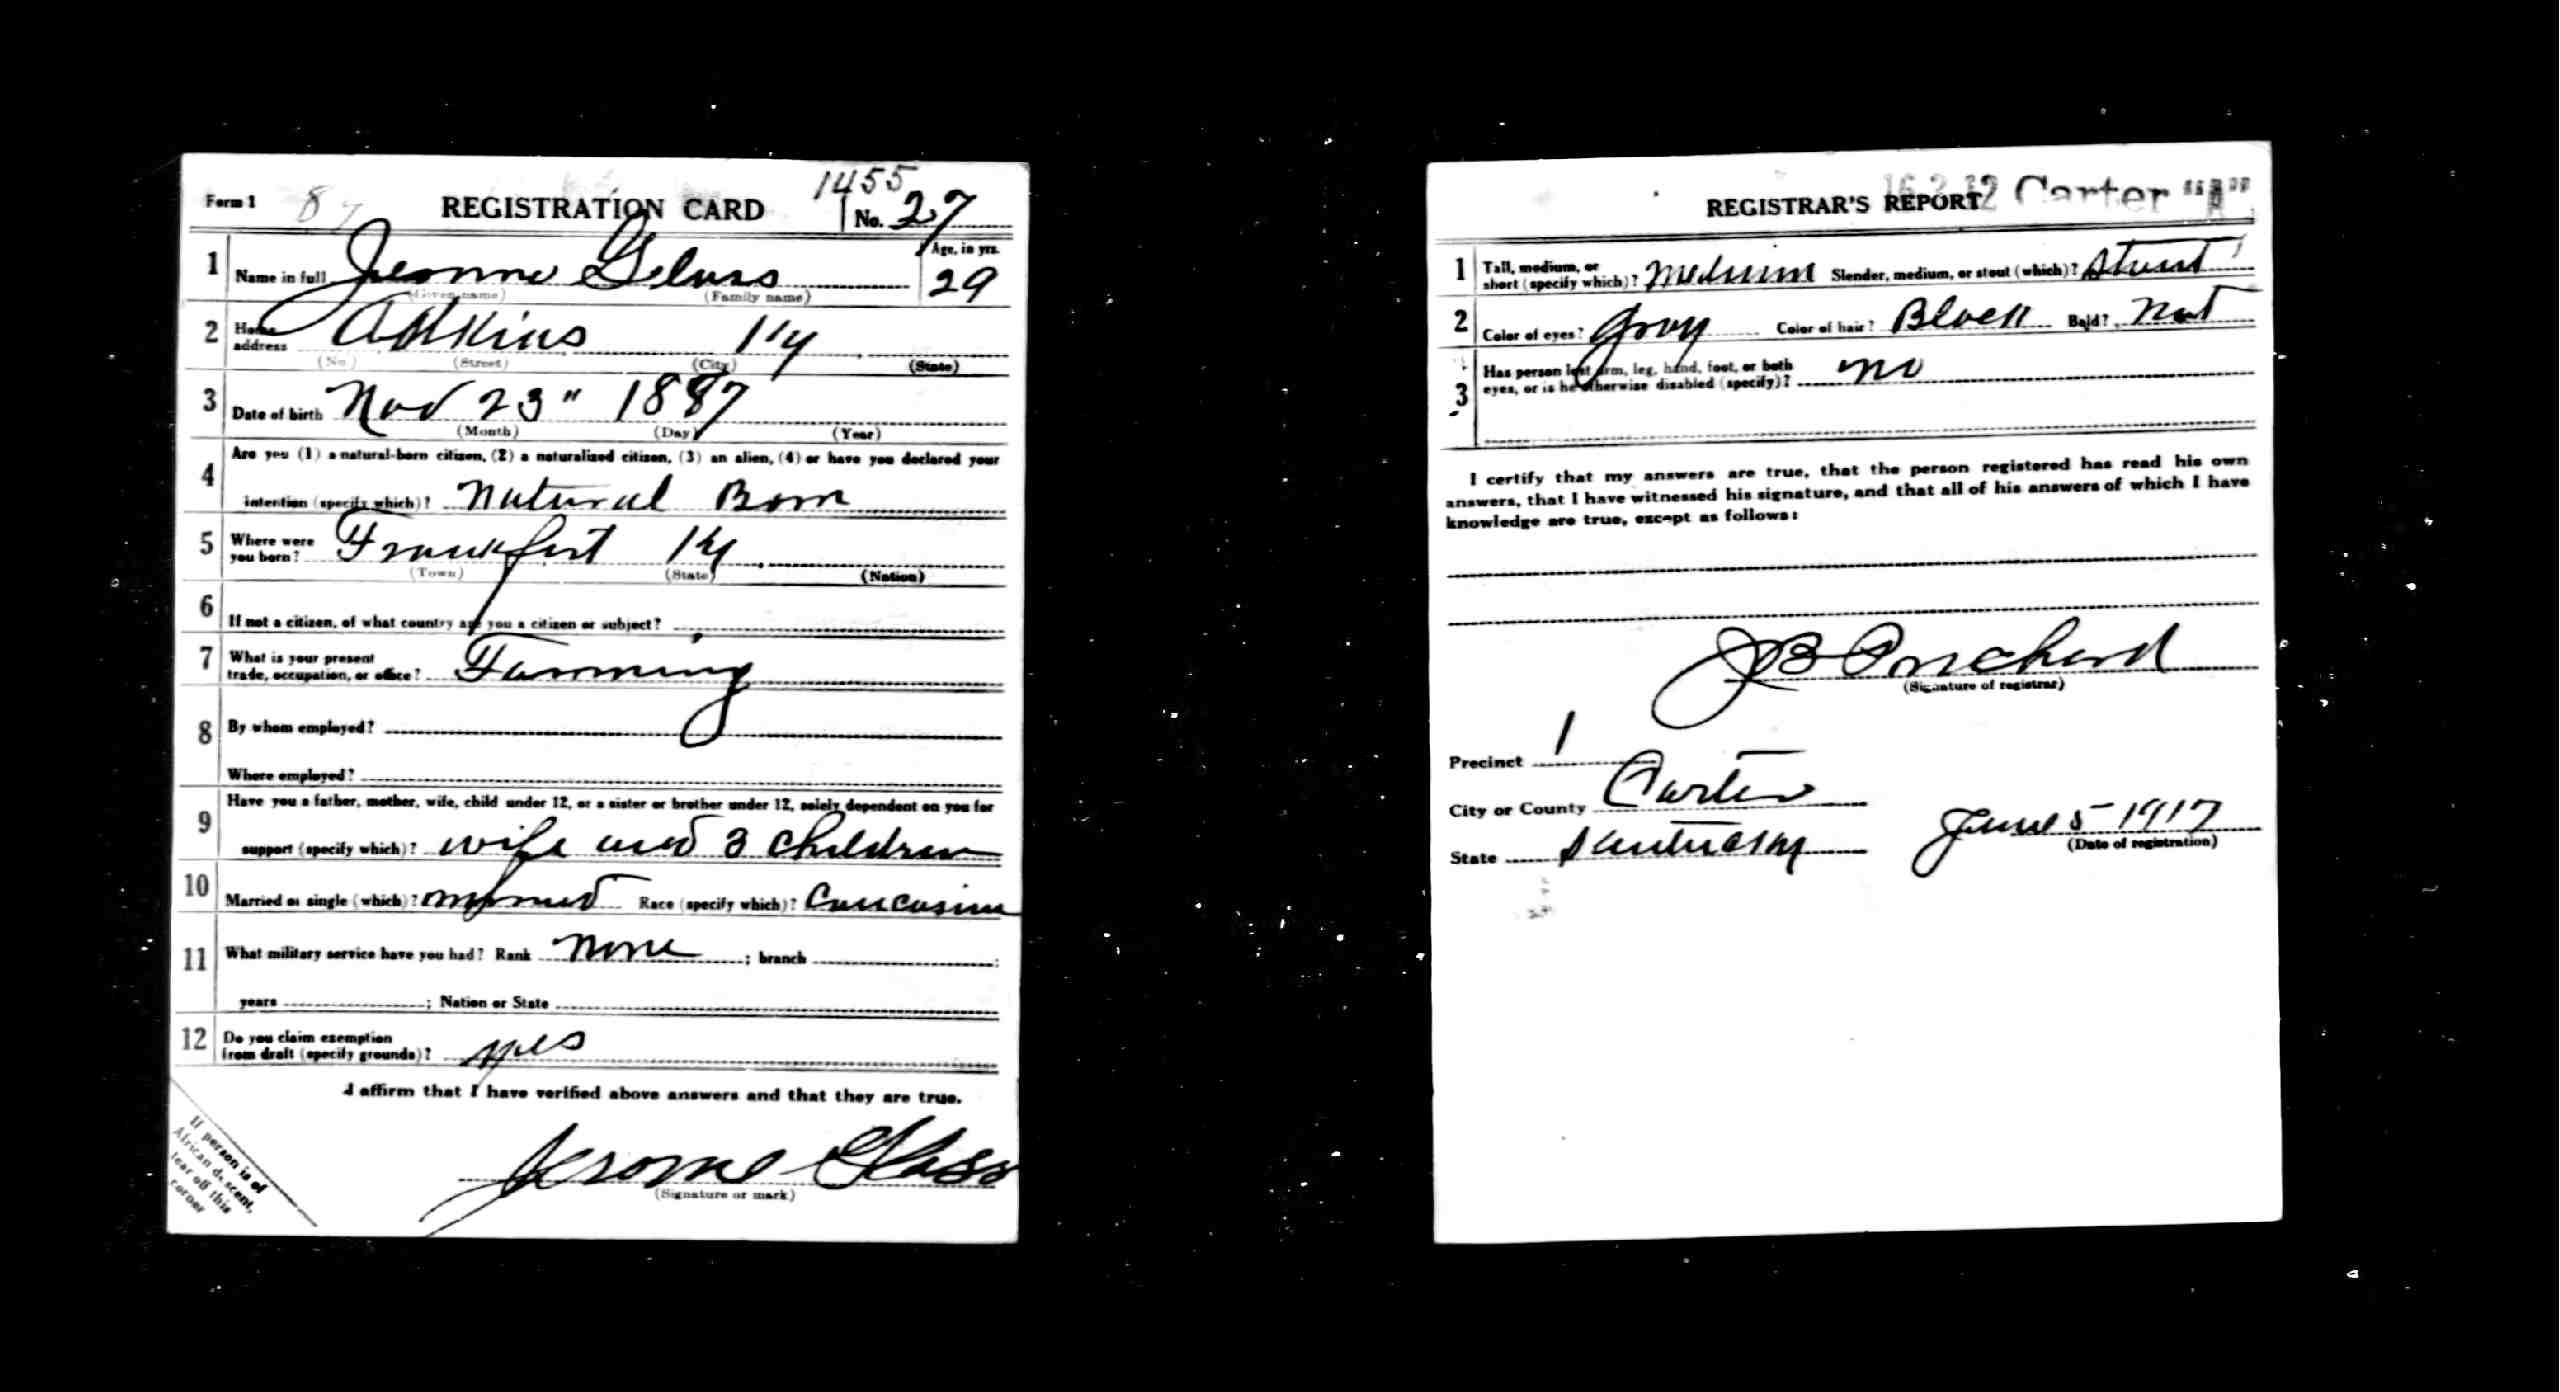 1455
Form 1 87 REGISTRATION CARD No. 27
1 Name in full Jerome Glass Age, in yrs. 29
(Given name) (Family name)
2 Home address Adkins Ky
(No.) (Street) (City) (State)
3 Date of birth Nov 23" 1887
(Month) (Day) (Year)
4 Are you (1) a natural-born citizen, (2) a naturalized citizen, (3) an alien, (4) or have you declared your
intention (specify which)? Natural Born
5 Where were you born? Frankfort Ky
(Town) (State) (Nation)
6 If not a citizen, of what country are you a citizen or subject?
7 What is your present
trade, occupation, or office? Farming
8 By whom employed?
Where employed?
9 Have you a father, mother, wife, child under 12, or a sister or brother under 12, solely dependent on you for
support (specify which)? wife and 3 children
10 Married or single (which)? married Race (specify which)? Caucasian
11 What military service have you had? Rank None ; branch ;
years ; Nation or State
12 Do you claim exemption
from draft (specify grounds)? yes
I affirm that I have verified above answers and that they are true.
Jerome Glass
(Signature or mark)
If person is of
African descent,
tear off this
corner
REGISTRAR'S REPORT Carter "A"
1 Tall, medium, or
short (specify which)? Medium Slender, medium, or stout (which)? Stout
2 Color of eyes? Gray Color of hair? Black Bald? Not
3 Has person lost arm, leg, hand, foot, or both
eyes, or is he otherwise disabled (specify)? no
I certify that my answers are true, that the person registered has read his own
answers, that I have witnessed his signature, and that all of his answers of which I have
knowledge are true, except as follows:
J B Prichard
(Signature of registrar)
Precinct 1
City or County Carter
State Kentucky June 5 - 1917
(Date of registration)